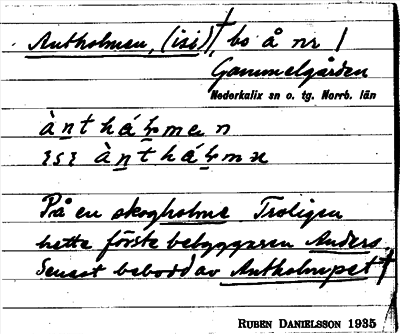 Antholmen, (isi)†, bo å nr 1
Gammelgården
Nederkalix sn o. tg. Norrb. län
àntháḷmen
ísí àntháḷmɴ
På en skogholme Troligen
hette förste bebyggaren Anders.
Senast bebodd av Antholmpet†
RUBEN DANIELSSON 1935